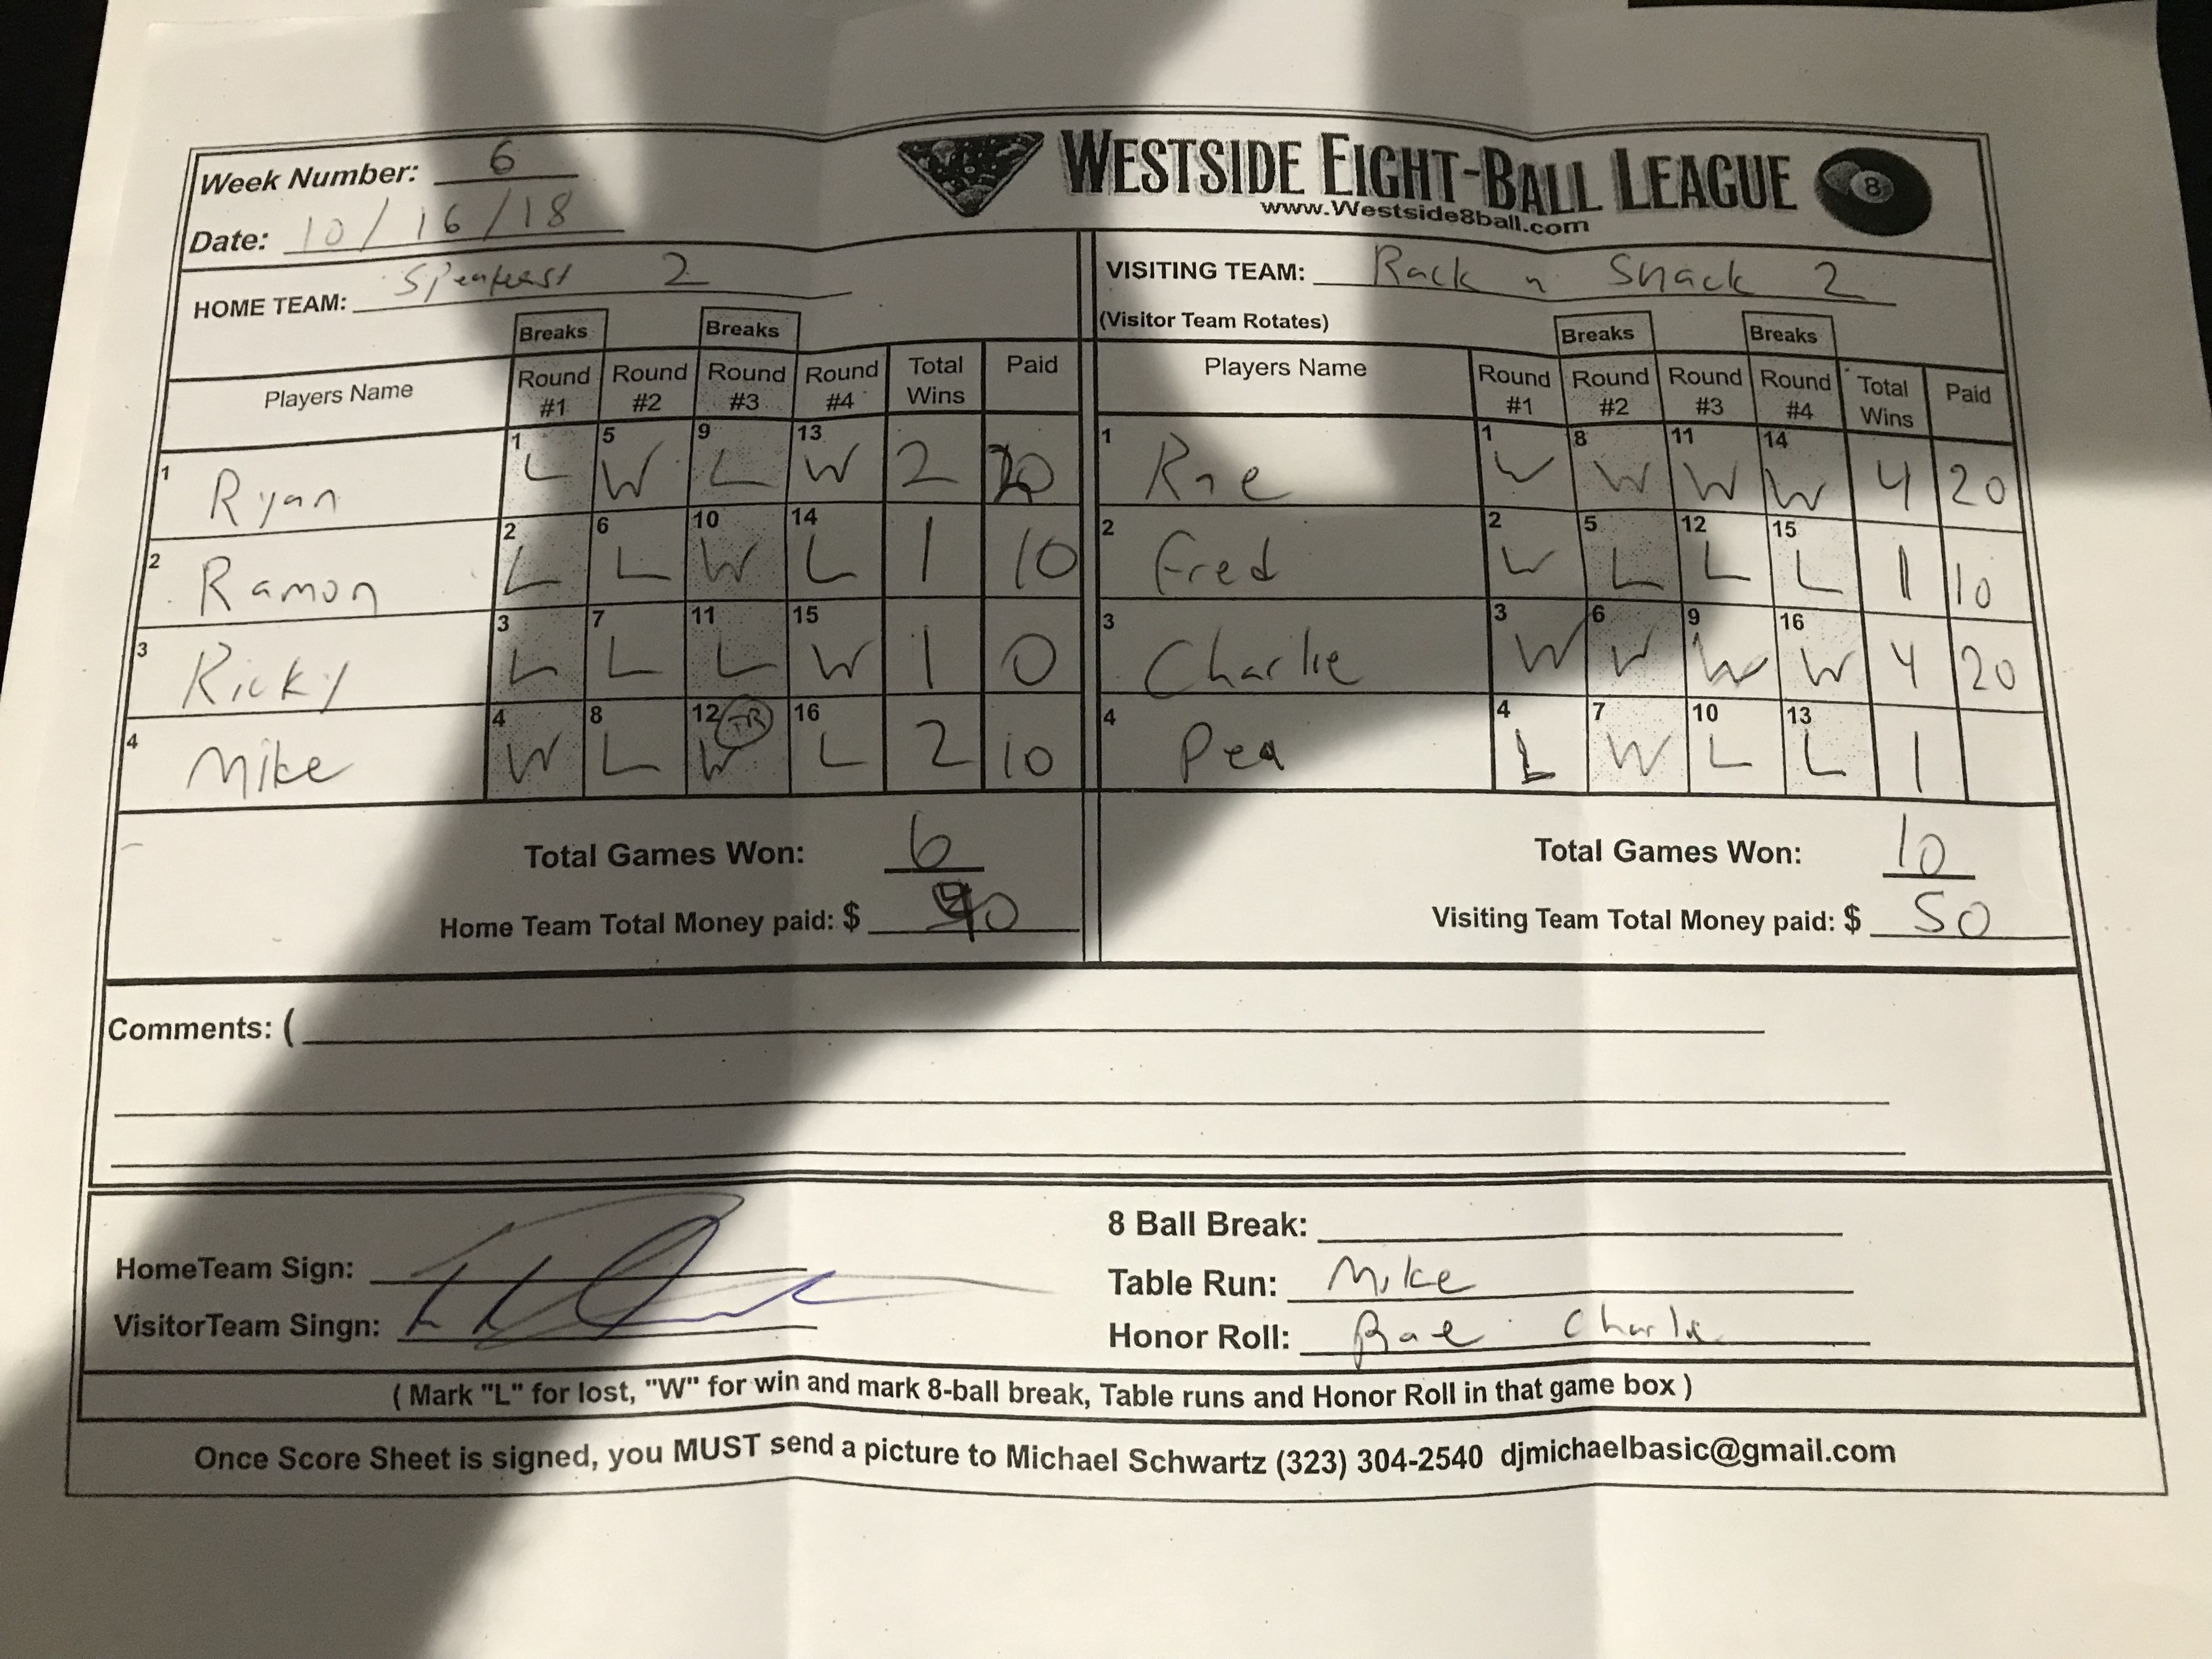 Week Number: 6
WESTSIDE EIGHT-BALL LEAGUE
8
www.Westside8ball.com
Date: 10/16/18
HOME TEAM: 2
VISITING TEAM: Rack n Snack 2
(Visitor Team Rotates)
Breaks Breaks
Breaks Breaks
Players Name Round #1 Round #2 Round #3 Round #4 Total Wins Paid
Players Name Round #1 Round #2 Round #3 Round #4 Total Wins Paid
1 Ryan 1 L 5 W 9 L 13 W 2
1 Rae 1 W 8 W 11 W 14 W 4 20
2 Ramon 2 L 6 L 10 W 14 L 1 10
2 Fred 2 W 5 L 12 L 15 L 1 10
3 Ricky 3 L 7 L 11 L 15 W 1 0
3 Charlie 3 W 6 W 9 W 16 W 4 20
4 Mike 4 W 8 L 12 TR W 16 L 2 10
4 Pea 4 L 7 W 10 L 13 L 1
Total Games Won: 6
Total Games Won: 10
Home Team Total Money paid: $
Visiting Team Total Money paid: $ 50
Comments: (
HomeTeam Sign:
VisitorTeam Singn:
8 Ball Break:
Table Run: Mike
Honor Roll: Rae Charlie
( Mark "L" for lost, "W" for win and mark 8-ball break, Table runs and Honor Roll in that game box )
Once Score Sheet is signed, you MUST send a picture to Michael Schwartz (323) 304-2540 djmichaelbasic@gmail.com